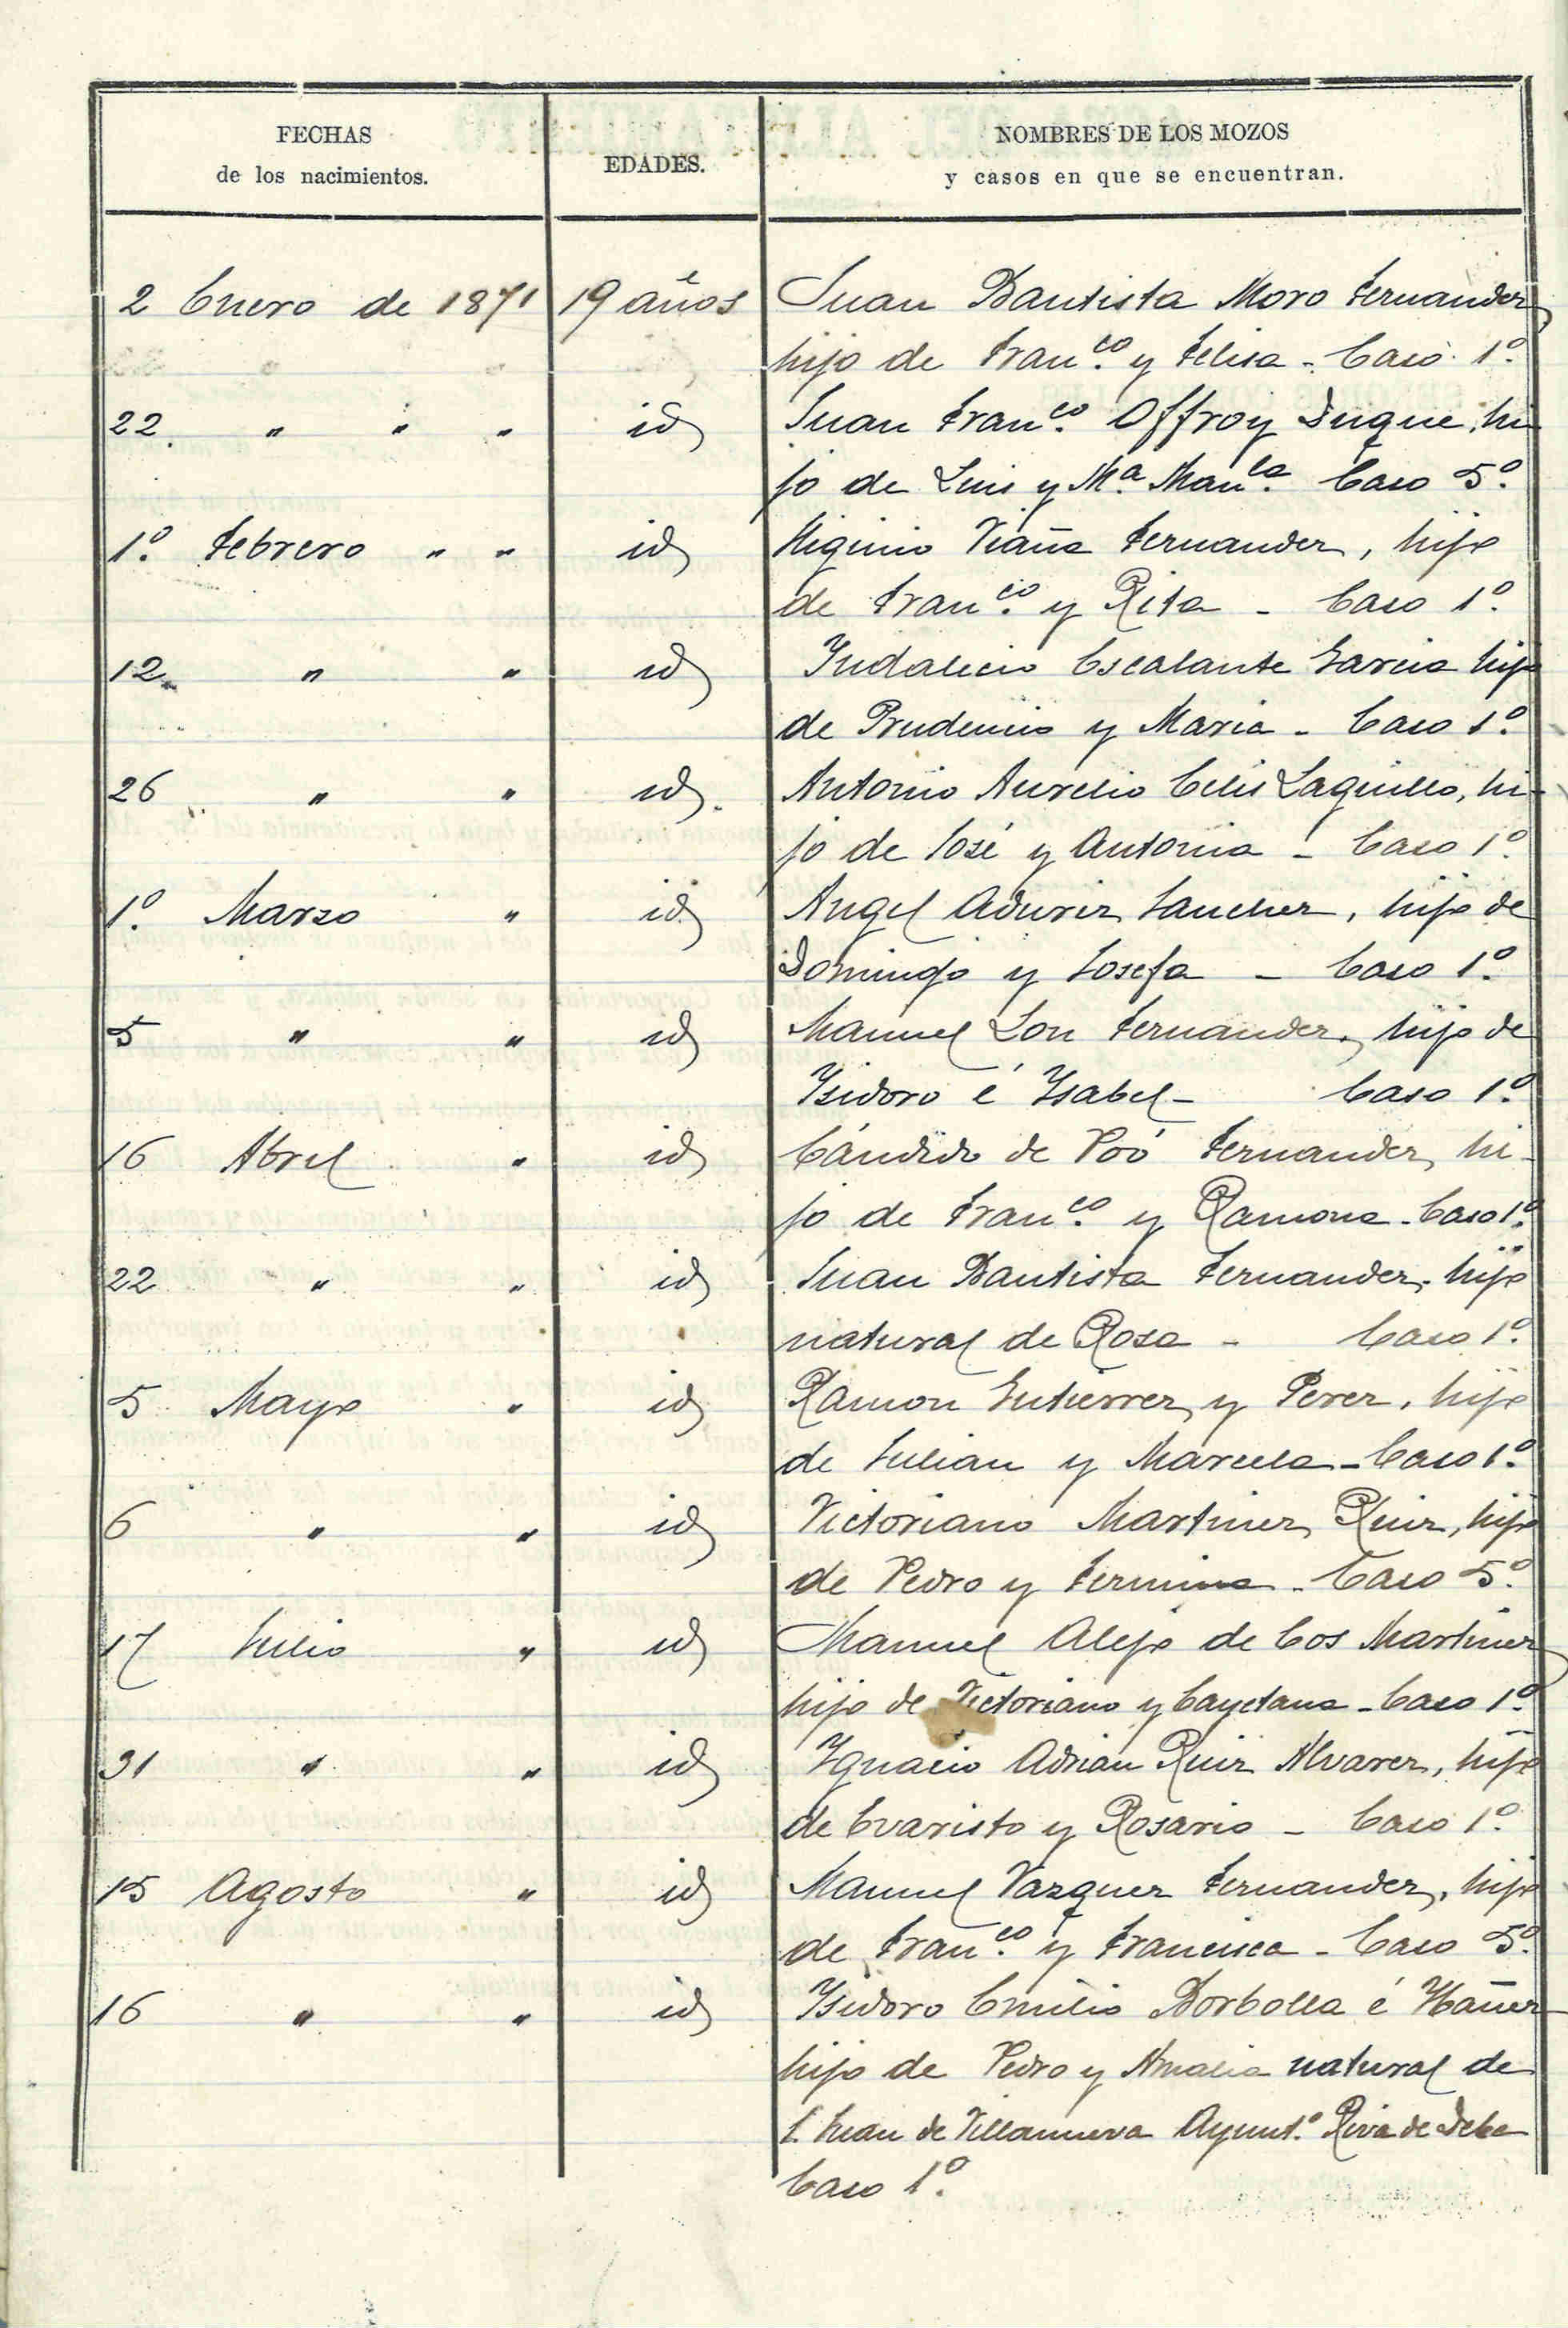 FECHAS
de los nacimientos.
EDADES.
NOMBRES DE LOS MOZOS
y casos en que se encuentran.
2 Enero de 1871 19 años Juan Bautista Moro Fernandez
hijo de Franco. y Felisa - Caso 1º
22 " " " id Juan Franco. Offroy Duque, hi
jo de Luis y Mª Manla. Caso 5º
1º. Febrero " " id Higinio Viaña Fernandez, hijo
de Franco. y Rita - Caso 1º
12 " " id Yndalecio Escalante Garcia hijo
de Prudencio y Maria - Caso 1º
26 " " id. Antonio Aurelio Celis Laguillo, hi-
jo de José y Antonia - Caso 1º
1º. Marzo " id Angel Aduriz Sanchez, hijo de
Domingo y Josefa - Caso 1º
5 " " id Manuel Lon Fernandez, hijo de
Ysidoro é Ysabel - Caso 1º
16 Abril " id Cándido de Poó Fernandez, hi-
jo de Franco. y Ramona - Caso 1º
22 " " id Juan Bautista Fernandez, hijo
natural de Rosa - Caso 1º
5 Mayo " id Ramon Gutierrez y Perez, hijo
de Julian y Marcela - Caso 1º
6 " " id Victoriano Martinez Ruiz, hijo
de Pedro y Fermina - Caso 5º
17 Julio " id Manuel Alejo de Cos Martinez
hijo de Victoriano y Cayetana - Caso 1º
31 " " id Ygnacio Adrian Ruiz Alvarez, hijo
de Evaristo y Rosario - Caso 1º
15 Agosto " id Manuel Vazquez Fernandez, hijo
de Franco. y Francisca - Caso 5º
16 " " id Ysidoro Emilio Borbolla é Ybañez
hijo de Pedro y Amalia natural de
S. Juan de Villanueva Ayunt.º Riva de Deba
Caso 1º.